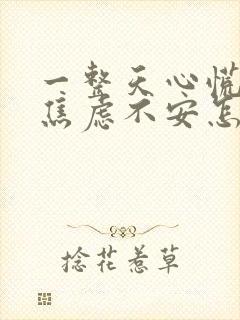 一整天心慌
焦虑不安怎
捻花惹草